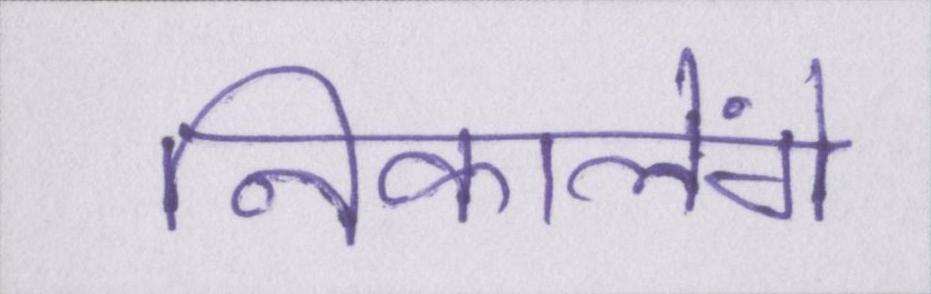 निकालेंगे